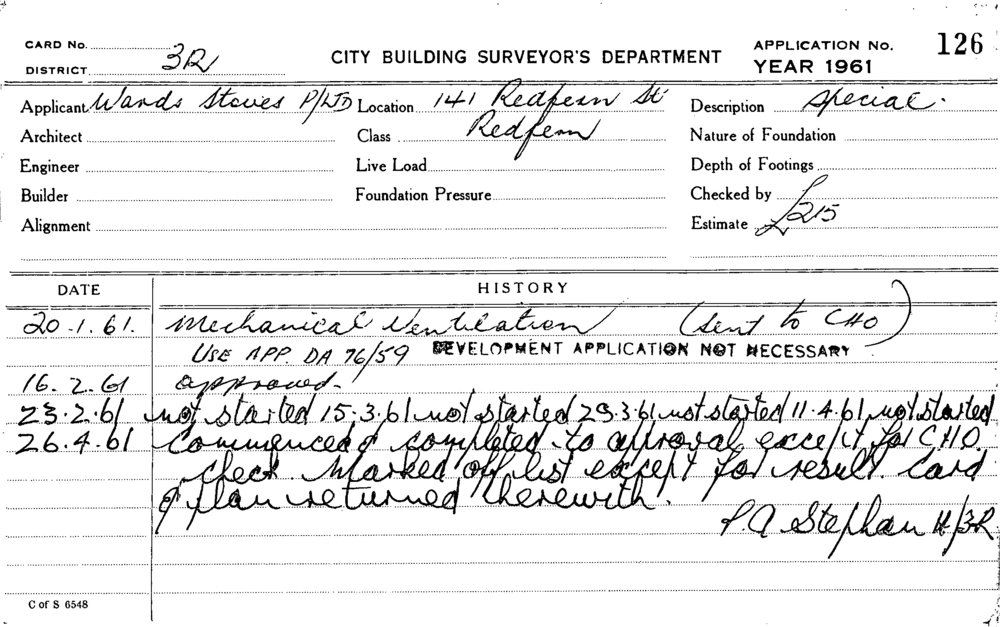 CARD No.
DISTRICT 3R
CITY BUILDING SURVEYOR'S DEPARTMENT
APPLICATION No. 126
YEAR 1961
Applicant Wards Stoves P/LTD Location 141 Redfern St Description Special.
Architect Class Redfern Nature of Foundation
Engineer Live Load Depth of Footings
Builder Foundation Pressure Checked by
Alignment Estimate £215
DATE HISTORY
20.1.61. Mechanical Ventilation (Sent to CHO)
USE APP. DA 76/59 DEVELOPMENT APPLICATION NOT NECESSARY
16.2.61 approved.
23.2.61 not started 15.3.61 not started 29.3.61 not started 11.4.61 not started
26.4.61 Commenced & completed to approval except for CHO
check. Marked off list except for result. Card
& plan returned herewith.
P.A Stephan H/3R
C of S 6548